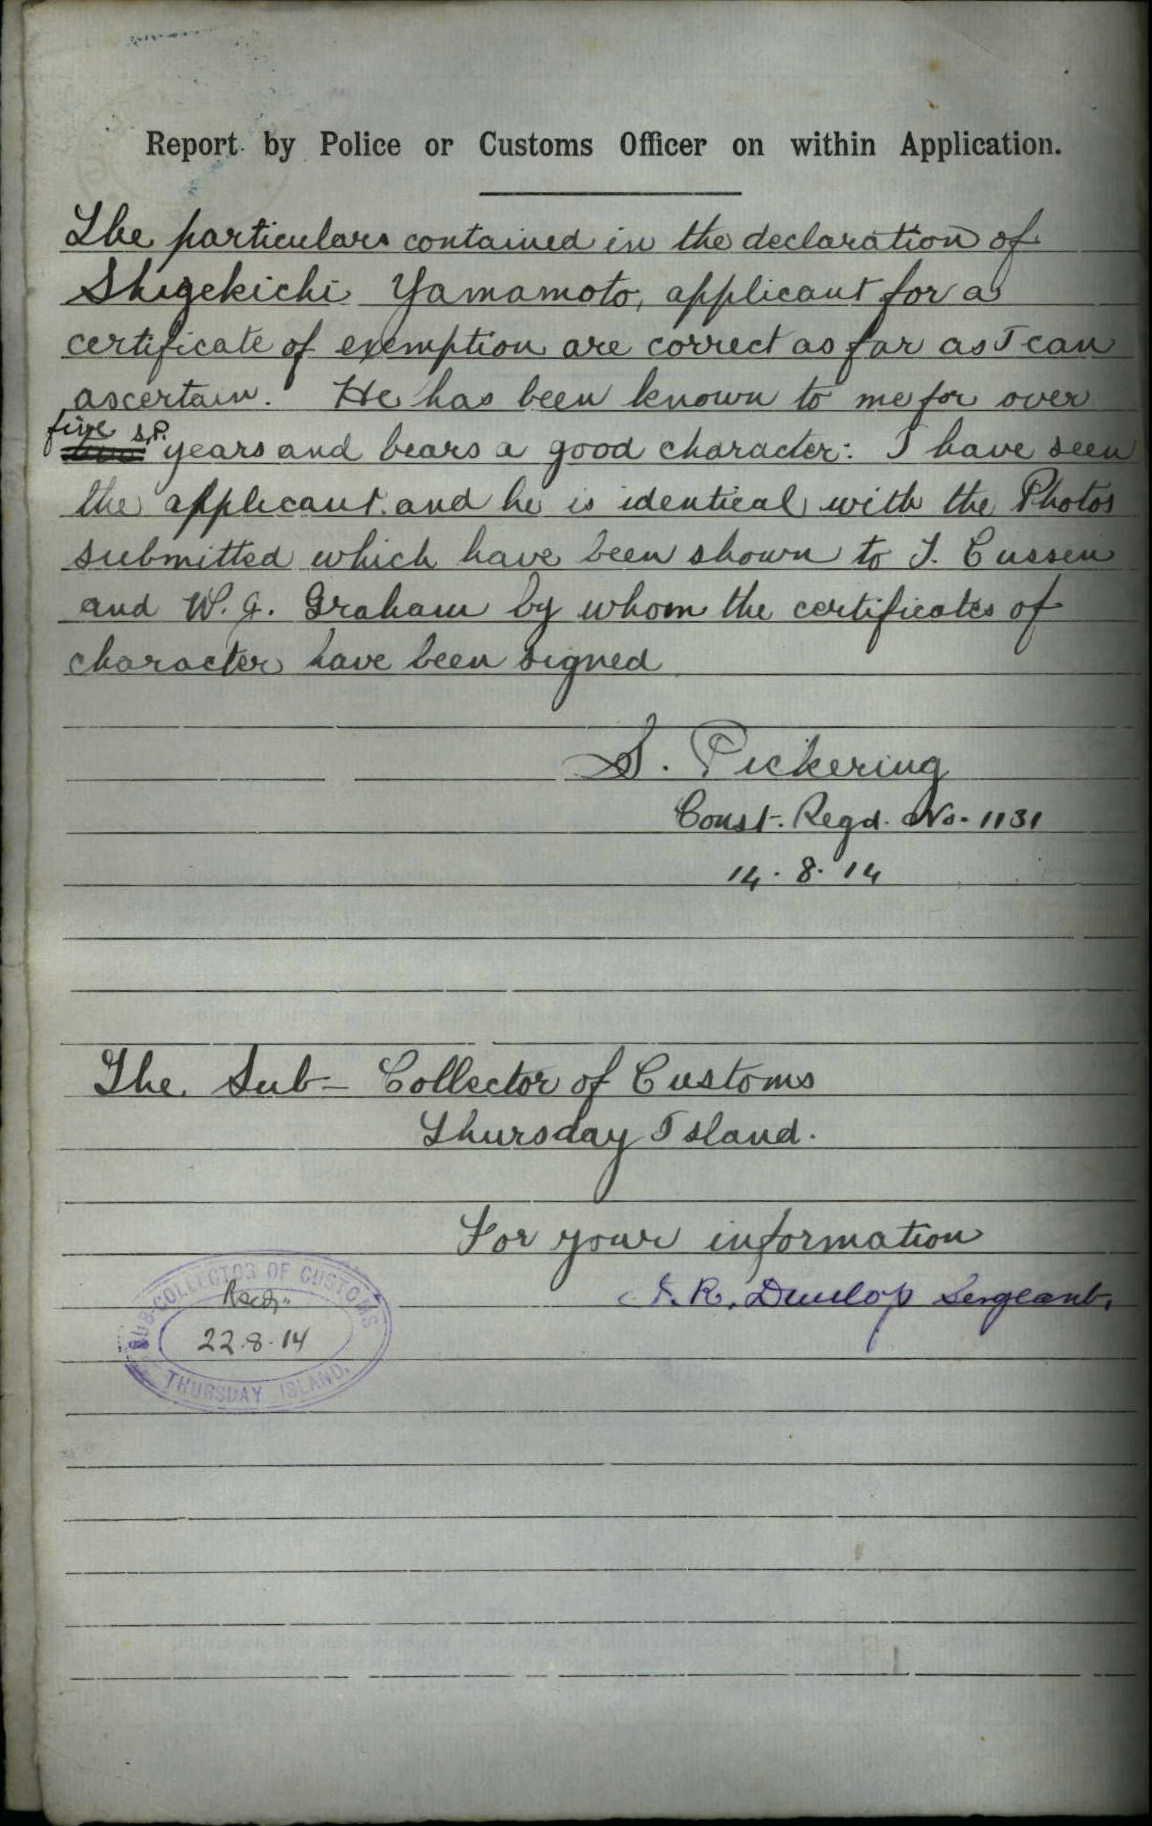 Report by Police or Customs Officer on within Application.
The particulars contained in the declaration of
Shigekichi Yamamoto, applicant for a
certificate of exemption are correct as far as I can
ascertain. He has been known to me for over
five S.P.
two years and bears a good character: I have seen
the applicant and he is identical with the Photos
submitted which have been shown to T. Cussen
and W. G. Graham by whom the certificates of
character have been signed
S. Pickering
Const. Regd. No. 1131
14.8.14
The Sub-Collector of Customs
Thursday Island.
For your information
R. Dunlop Sergeant.
SUB-COLLECTOR OF CUSTOMS
Recd.
22.8.14
THURSDAY ISLAND.